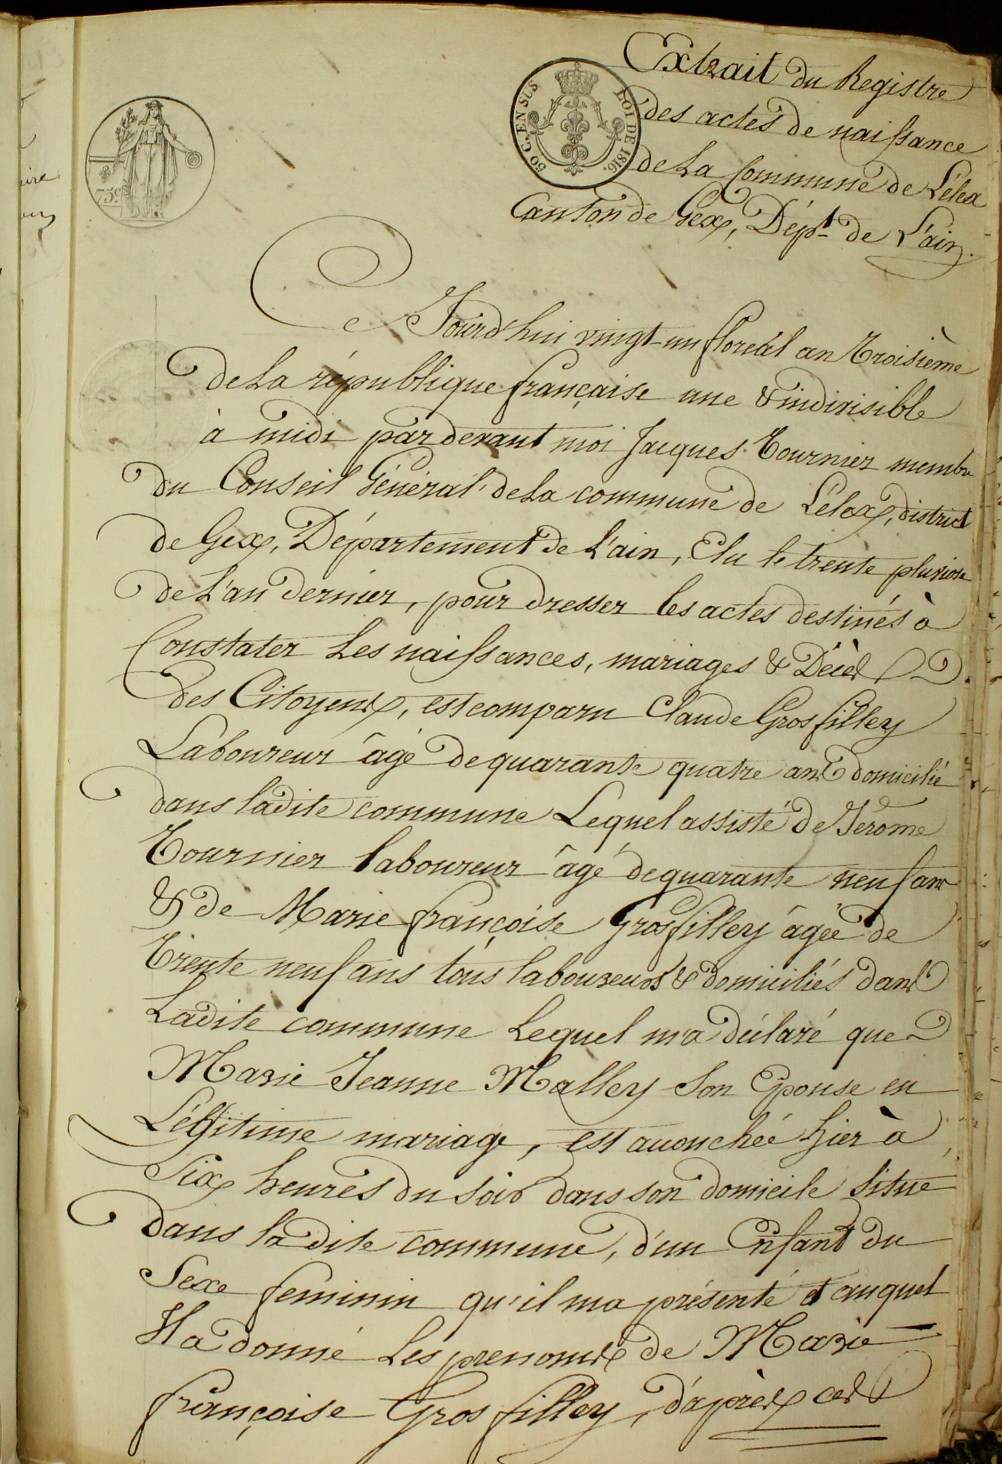 Extrait du Registre
des actes de naissance
de La Commune de Lélex
Canton de Gex, Dépt. de L'ain.
50 C. EN SUS
LOI DE 1816.
75c
Ce Jourd'hui vingt-un floréal an troisième
de La république française une & indivisible
à midi pardevant moi Jacques Tournier membre
du Conseil Général de La commune de Lélex, district
de Gex, Département de L'ain, Elu le trente pluviose
de L'an dernier, pour dresser les actes destinés à
Constater Les naissances, mariages & Décès
des Citoyens, est comparu Claude Grosfilley
Laboureur âgé de quarante quatre ans domicilié
dans ladite commune Lequel assisté de Jérome
Tournier laboureur âgé de quarante neuf ans
& de Marie françoise Grosfilley âgée de
trente neuf ans tous laboureurs & domiciliés dans
Ladite commune Lequel m'a déclaré que
Marie Jeanne Malley Son Epouse en
Légitime mariage, est accouchée hier à
Six heures du soir dans son domicile situé
dans la dite commune, d'un Enfant du
Sexe féminin qu'il ma présenté et auquel
Il a donné Les prenoms de Marie
françoise Gros filley, d'après ces